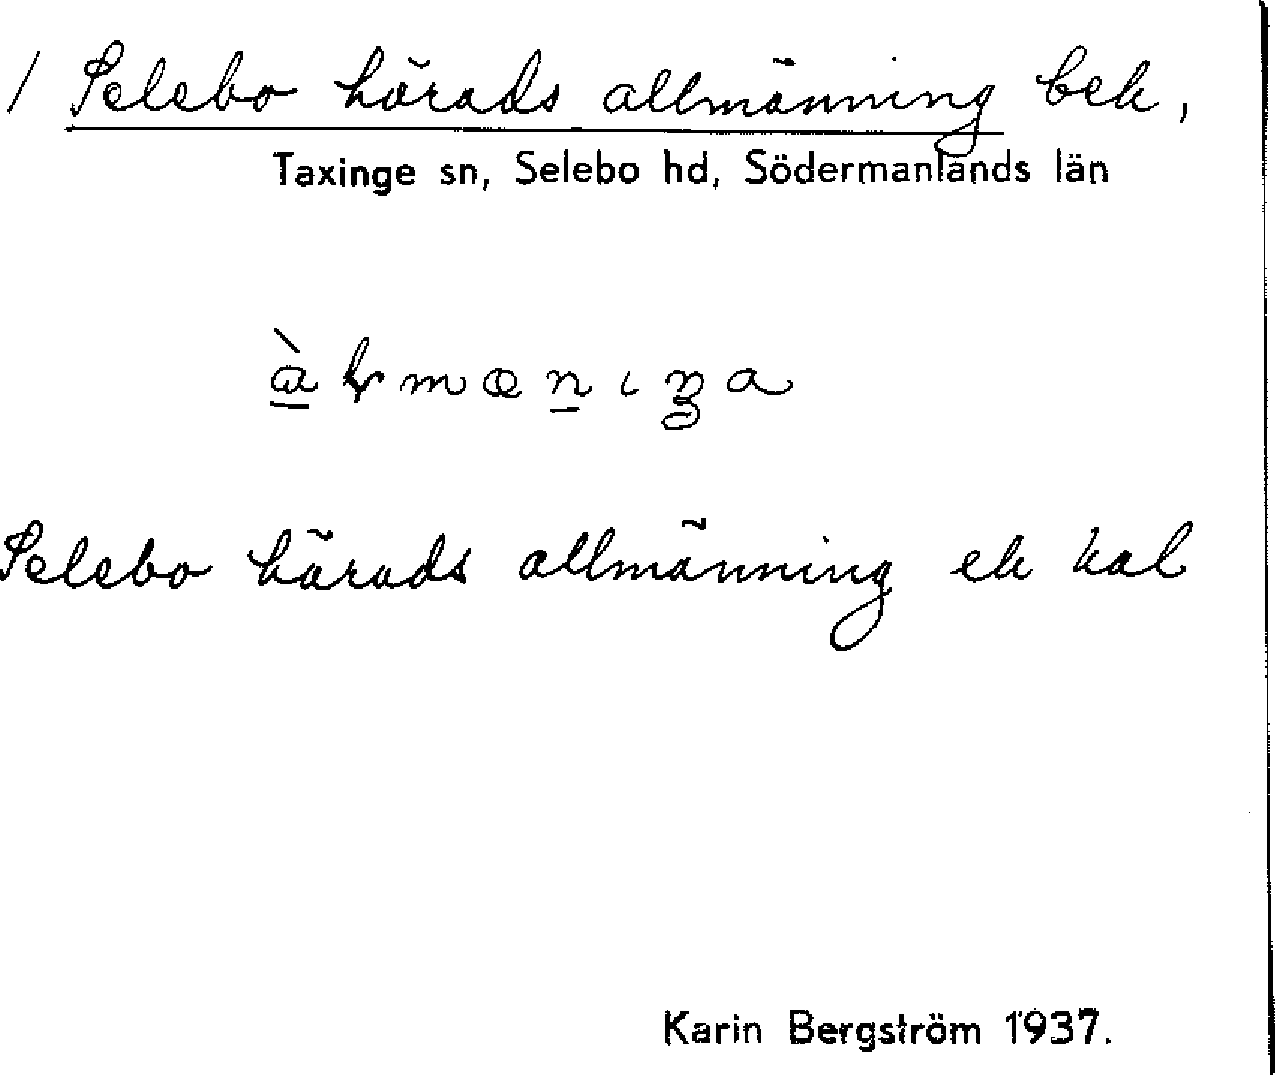 / Selebo härads allmänning bek,
Taxinge sn, Selebo hd, Södermanlands län
Selebo härads allmänning ek kal
Karin Bergström 1937.